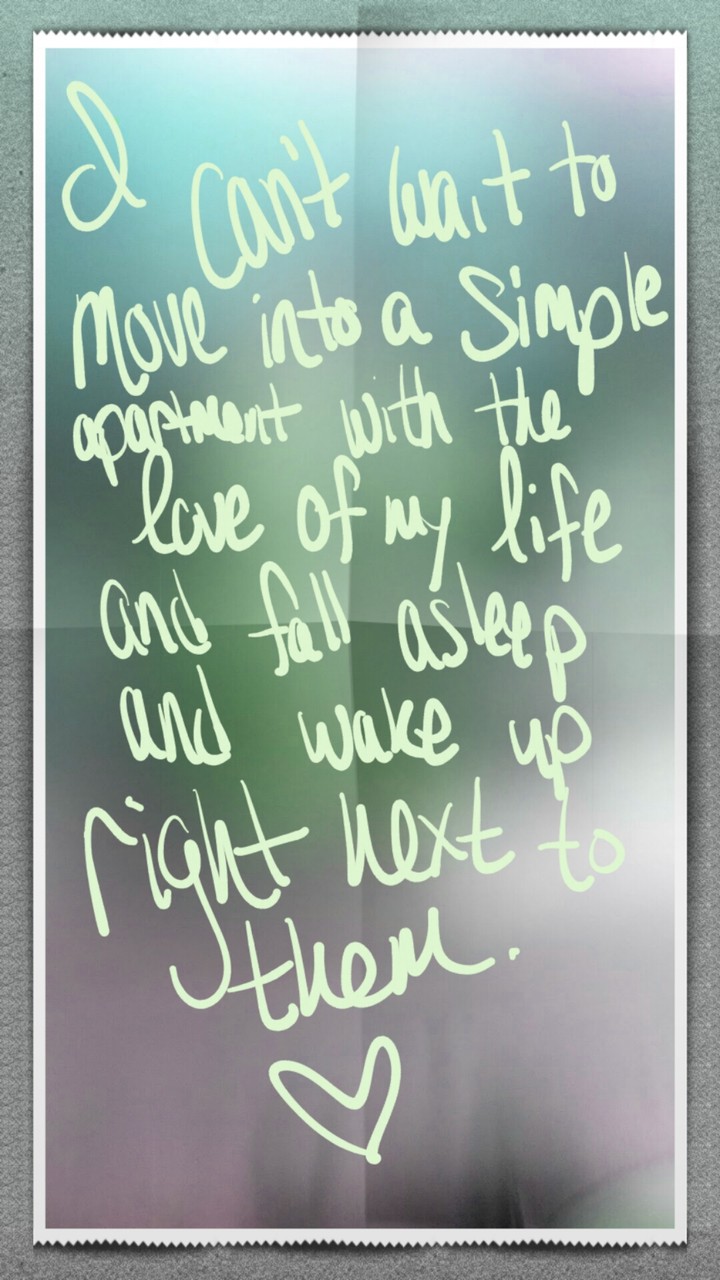 I can't wait to
move into a simple
apartment with the
love of my life
and fall asleep
and wake up
right next to
them.